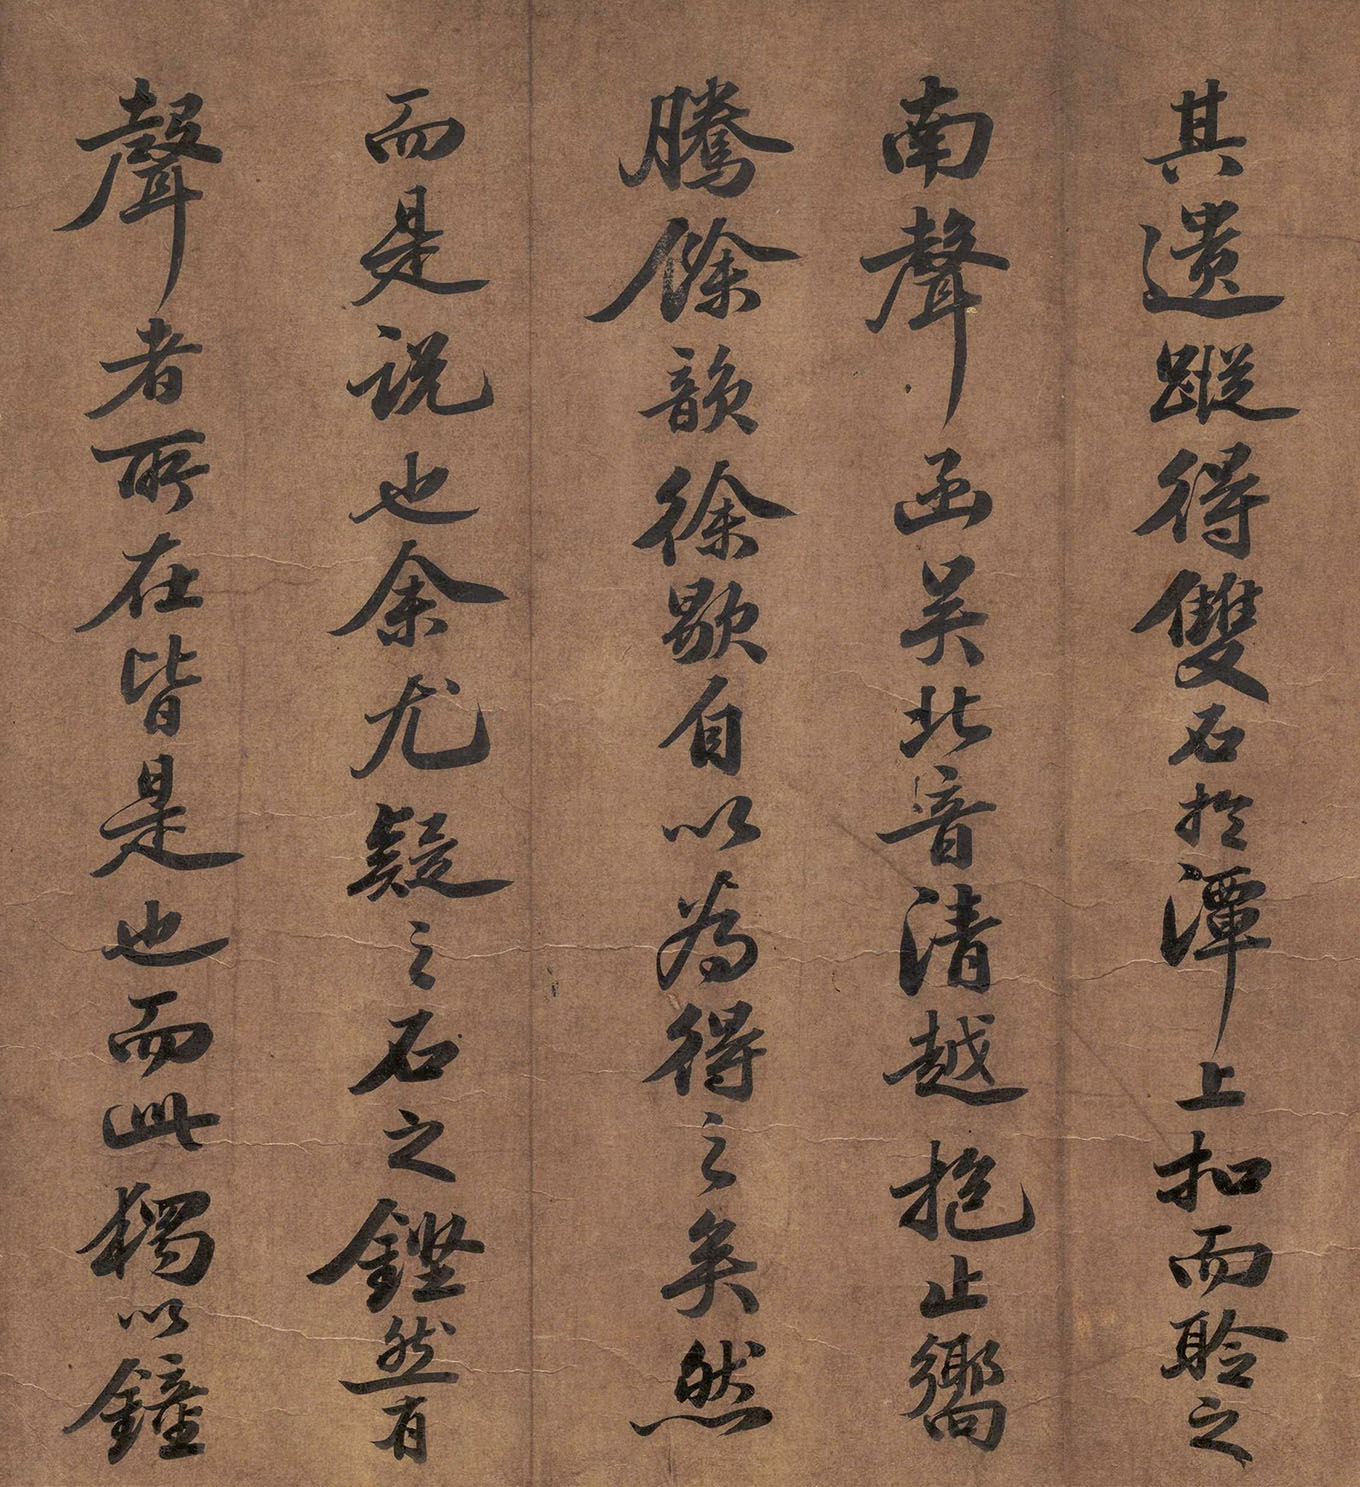 其遺蹤得雙石於潭上扣而聆之
南聲函矣北音清越抱止響
騰餘韻徐歇自以為得之矣然
而是說也余尤疑之石之鏗然有
聲者所在皆是也而此獨以鐘